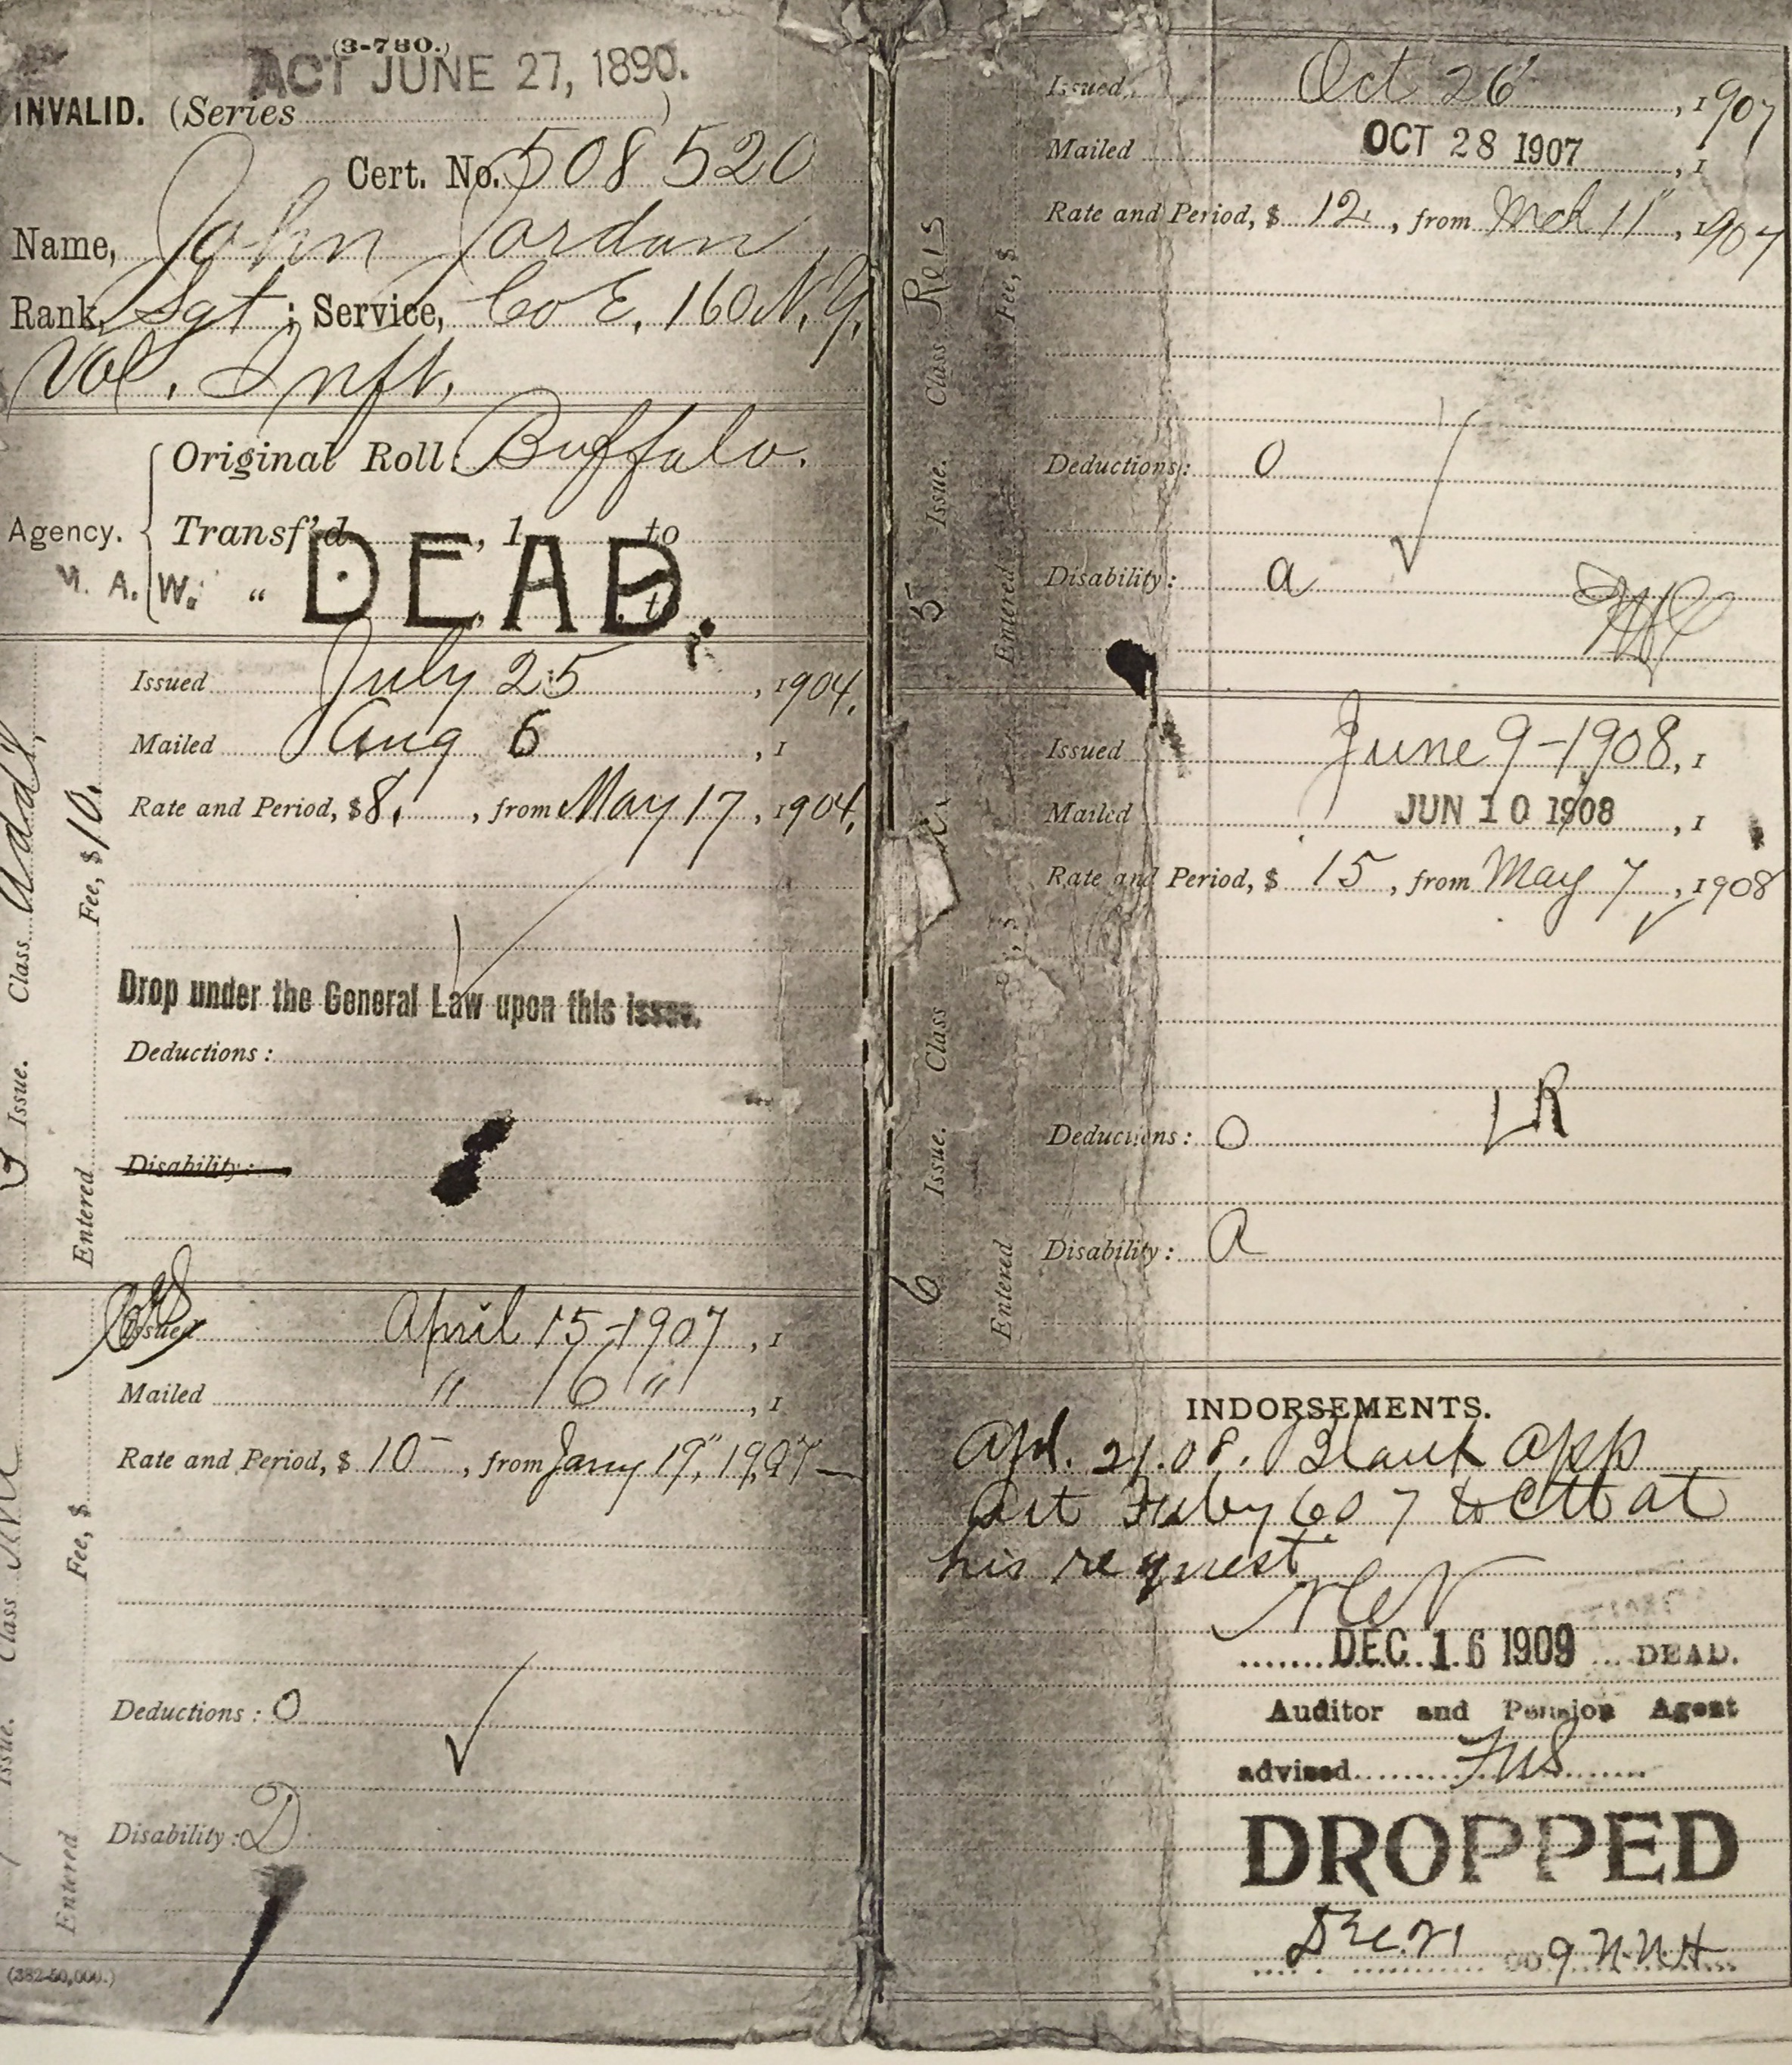 (3-780.)
ACT JUNE 27, 1890.
INVALID. (Series )
Cert. No. 508 520
Name, John Jordan
Rank, Sgt ; Service, Co E, 160 N.Y.
Vol. Inft.
Original Roll: Buffalo.
Agency. Transf'd , 1 to
M. A. W. " to
DEAD.
Issued July 25 , 1904.
Mailed Aug 6 , 1
Rate and Period, $ 8. , from May 17 , 1904.
Drop under the General Law upon this issue.
Deductions:
Disability:
3 Issue. Class Add'l,
Entered Fee, $10.
Issued April 15-1907 , 1
Mailed " 16 " , 1
Rate and Period, $ 10- , from Jany 19", 1907
Deductions: 0
Disability: D
Issue. Class
Entered Fee, $
(382-50,000.)
Issued Oct 26 , 1907
Mailed OCT 28 1907 , 1
Rate and Period, $ 12 , from Mch 11" , 1907
Deductions: 0
Disability: a
5 Issue. Class Reis
Entered Fee, $
Issued June 9-1908, 1
Mailed JUN 10 1908 , 1
Rate and Period, $ 15 , from May 7 , 1908
Deductions: O
LR
Disability: a
6 Issue. Class
Entered
INDORSEMENTS.
Apl. 21.08. Blank app
Act Feby 6 07 to Clt at
his request
DEC 16 1909 DEAD.
Auditor and Pension Agent
advised
DROPPED
Dec. 21 09 N.N.H